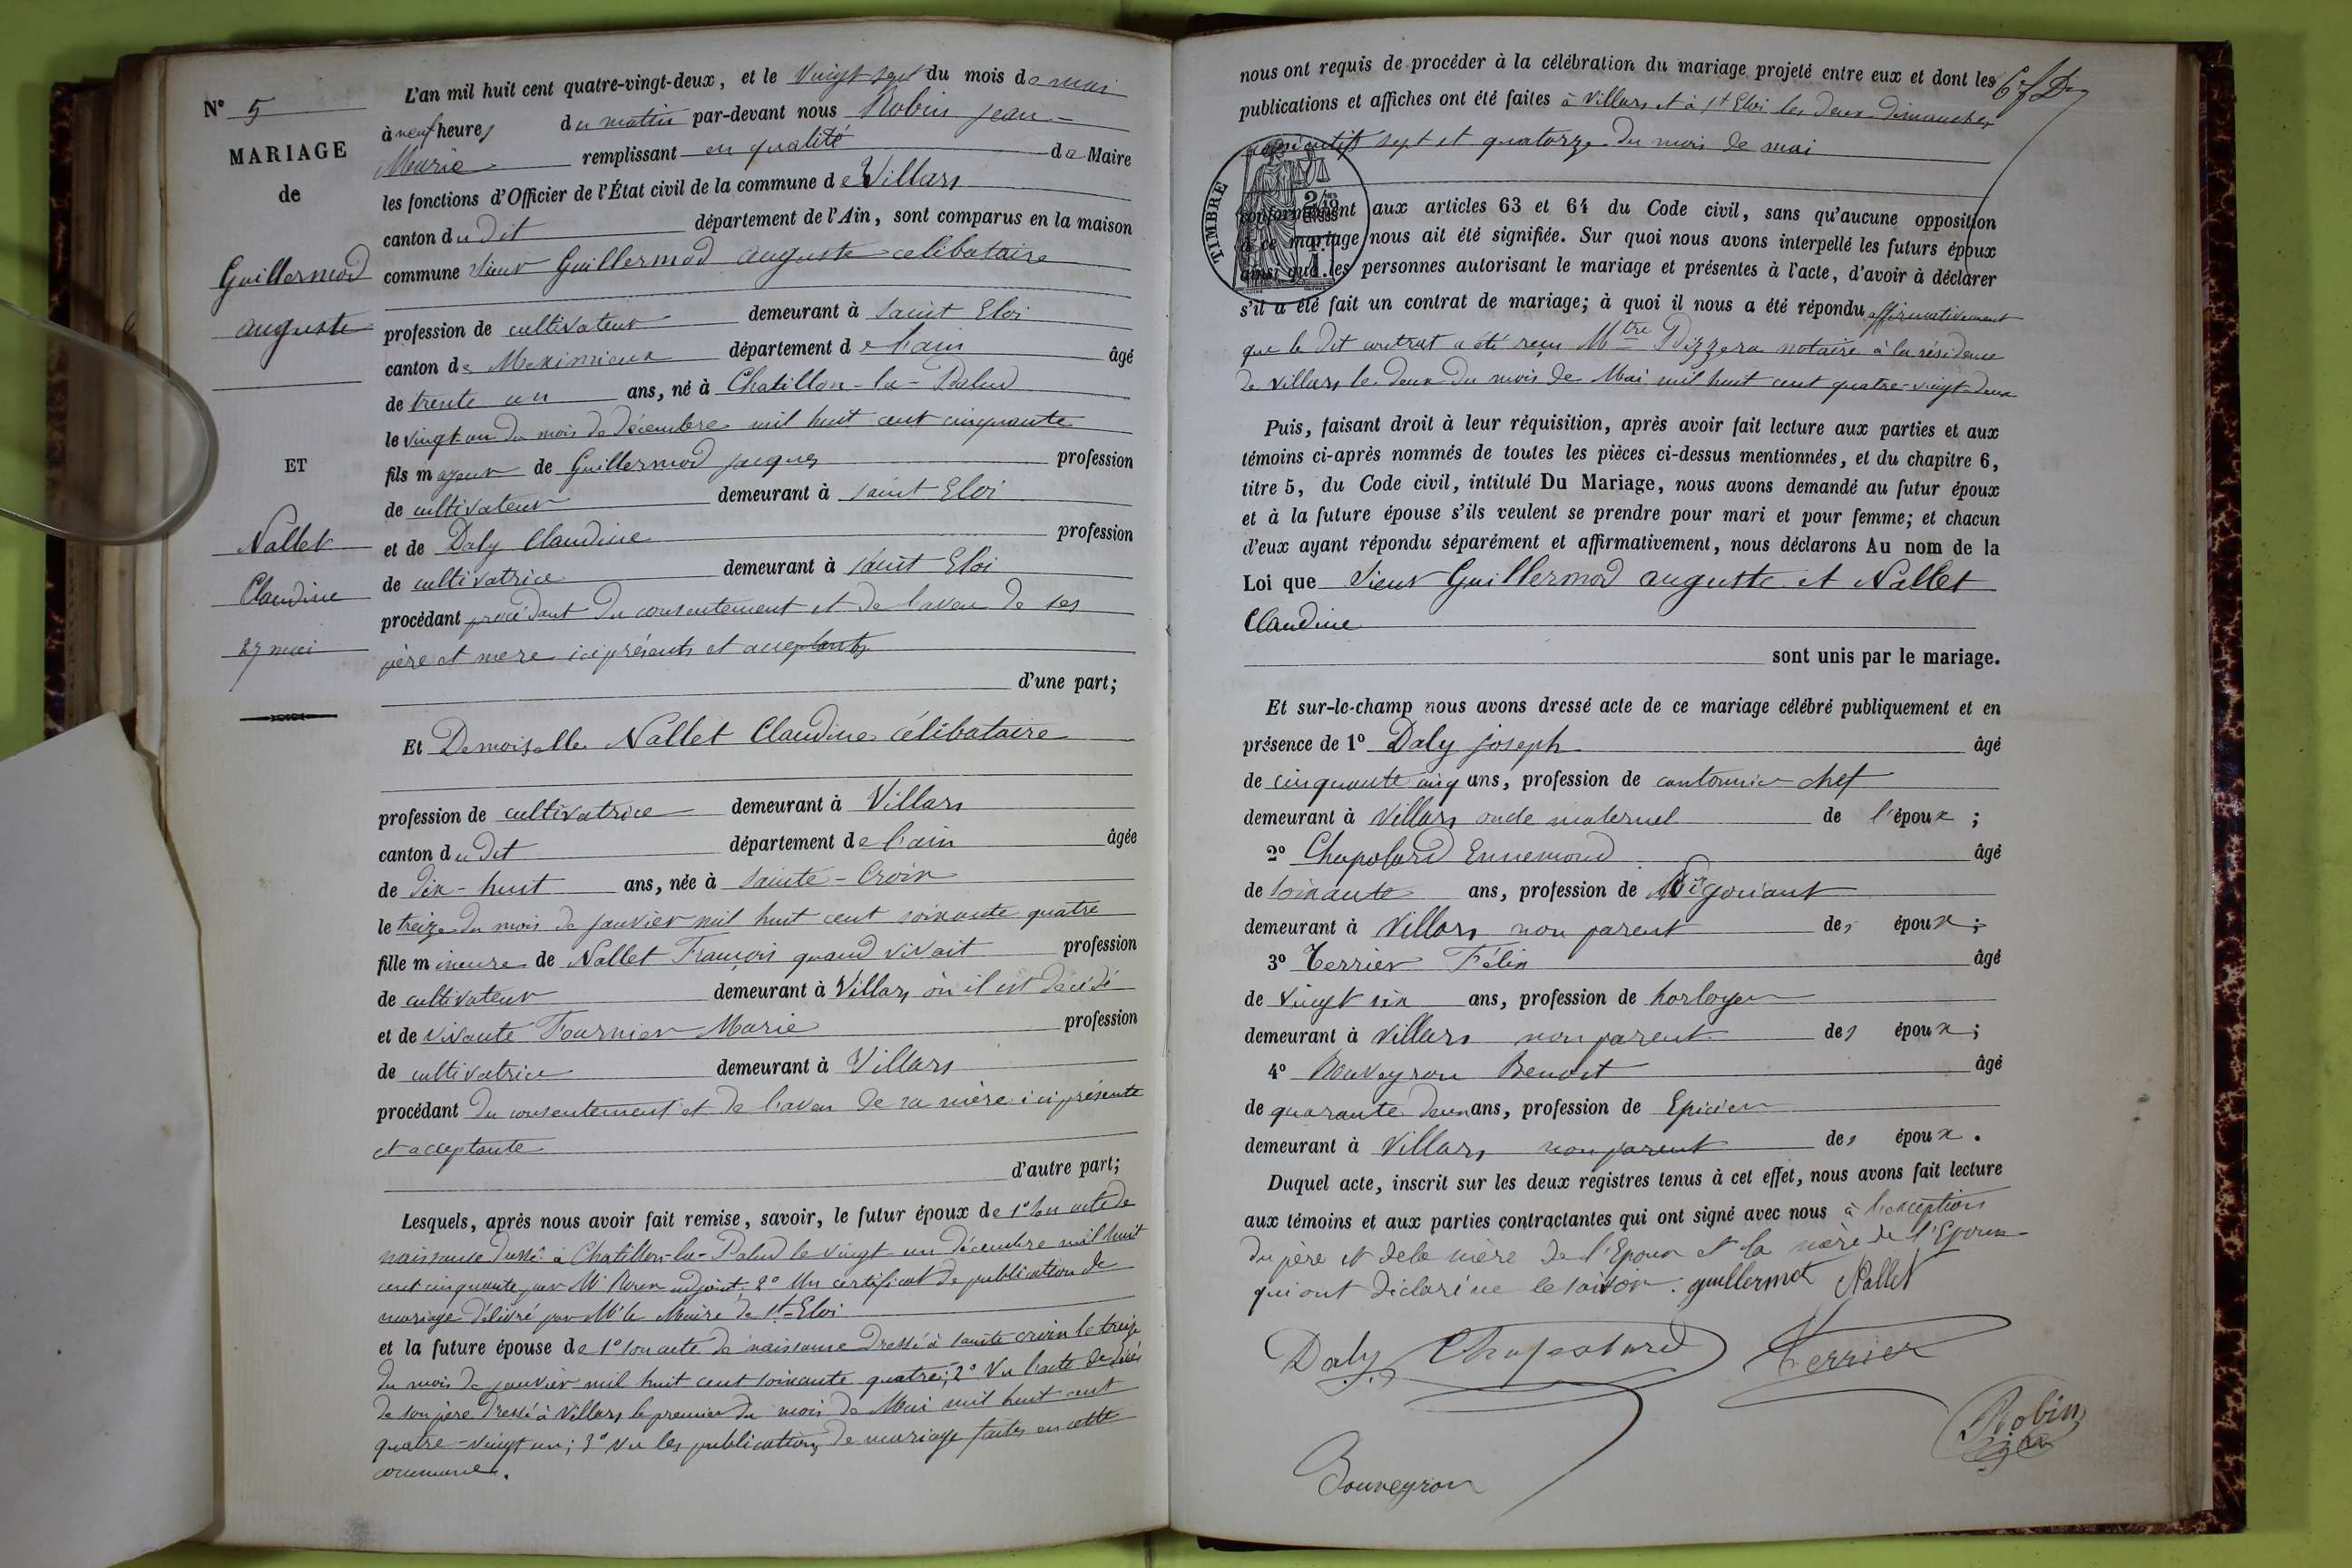 N° 5
MARIAGE
de
Guillermod
auguste
ET
Nallet
Claudine
27 mai
L'an mil huit cent quatre-vingt-deux, et le Vingt sept du mois de mai
à neuf heures du matin par-devant nous Robin jean-
Marie remplissant en qualité de Maire
les fonctions d'Officier de l'État civil de la commune de Villars
canton du dit département de l'Ain, sont comparus en la maison
commune Sieur Guillermod auguste celibataire
profession de cultivateur demeurant à Saint Eloi
canton de Meximieux département de l'ain âgé
de trente un ans, né à Chatillon-la-Palud
le vingt-un du mois de décembre mil huit cent cinquante
fils majeur de Guillermod jacques profession
de cultivateur demeurant à saint Eloi
et de Daly Claudine profession
de cultivatrice demeurant à saint Eloi
procédant procédant du consentement et de l'aveu de ses
père et mere ici présents et acceptants
d'une part;
Et Demoiselle Nallet Claudine célibataire
profession de cultivatrice demeurant à Villars
canton du dit département de l'ain âgée
de dix-huit ans, née à Sainte-Croix
le treize du mois de janvier mil huit cent soixante quatre
fille mineure de Nallet François quand vivait profession
de cultivateur demeurant à Villars où il est décédé
et de vivante Fournier Marie profession
de cultivatrice demeurant à Villars
procédant du consentement et de l'aveu de sa mère ici présente
et acceptante
d'autre part;
Lesquels, après nous avoir fait remise, savoir, le futur époux de 1° son acte de
naissance dressé à Chatillon-la-Palud le vingt-un décembre mil huit
cent cinquante par Mr Roux adjoint; 2° Un certificat de publication de
mariage délivré par Mr le Maire de St-Eloi
et la future épouse de 1° son acte de naissance dressé à sainte croix le treize
du mois de janvier mil huit cent soixante quatre; 2° Vu l'acte de décès
de son père dressé à Villars le premier du mois de Mai mil huit cent
quatre-vingt un; 3° vu les publications de mariage faites en cette
commune.
nous ont requis de procéder à la célébration du mariage projeté entre eux et dont les
publications et affiches ont été faites à Villars et à St Eloi les deux dimanches
consécutifs sept et quatorze du mois de mai
TIMBRE
conformément aux articles 63 et 64 du Code civil, sans qu'aucune opposition
à ce mariage nous ait été signifiée. Sur quoi nous avons interpellé les futurs époux
ainsi que les personnes autorisant le mariage et présentes à l'acte, d'avoir à déclarer
s'il a été fait un contrat de mariage; à quoi il nous a été répondu affirmativement
que le dit contrat a été reçu Mtre Pizzera notaire à la résidence
de Villars le deux du mois de Mai mil huit cent quatre-vingt-deux
Puis, faisant droit à leur réquisition, après avoir fait lecture aux parties et aux
témoins ci-après nommés de toutes les pièces ci-dessus mentionnées, et du chapitre 6,
titre 5, du Code civil, intitulé Du Mariage, nous avons demandé au futur époux
et à la future épouse s'ils veulent se prendre pour mari et pour femme; et chacun
d'eux ayant répondu séparément et affirmativement, nous déclarons Au nom de la
Loi que Sieur Guillermod auguste et Nallet
Claudine
sont unis par le mariage.
Et sur-le-champ nous avons dressé acte de ce mariage célébré publiquement et en
présence de 1° Daly joseph âgé
de cinquante cinq ans, profession de cantonnier chef
demeurant à Villars oncle maternel de l'époux;
2° Chapolard Ennemond âgé
de soixante ans, profession de Négociant
demeurant à Villars non parent des époux;
3° Terrier Félix âgé
de vingt six ans, profession de horloger
demeurant à Villars non parent des époux;
4° Bouveyron Benoit âgé
de quarante deux ans, profession de Epicier
demeurant à Villars non parent des époux.
Duquel acte, inscrit sur les deux registres tenus à cet effet, nous avons fait lecture
aux témoins et aux parties contractantes qui ont signé avec nous à l'exception
du père et de la mère de l'Epoux et la mère de l'Epouse
qui ont déclaré ne le savoir. guillermet Nallet
Daly Chapolard Terrier
Robin
Bouveyron